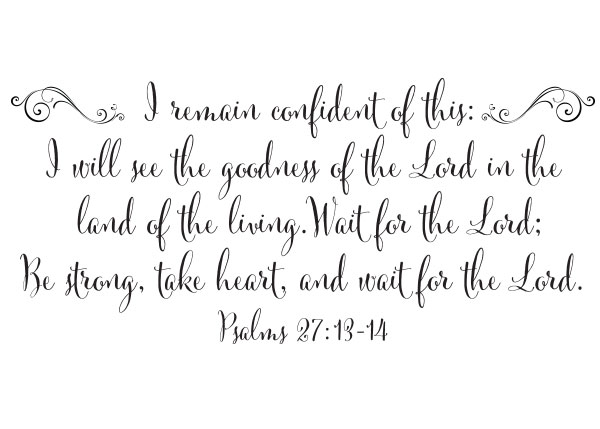 I remain confident of this:
I will see the goodness of the Lord in the
land of the living.Wait for the Lord;
Be strong, take heart, and wait for the Lord.
Psalms 27:13-14